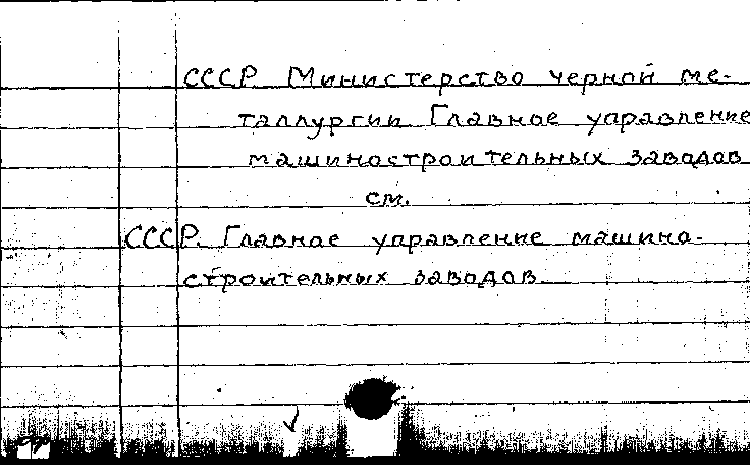 СССР. Министерство черной ме-
таллургии. Главное управление
машиностроительных заводов
см.
СССР. Главное управление машино-
строительных заводов